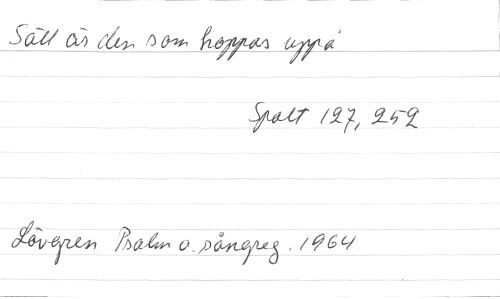 Säll är den som hoppas uppå
Spalt 127, 252
Lövgren Psalm o. sångreg. 1964